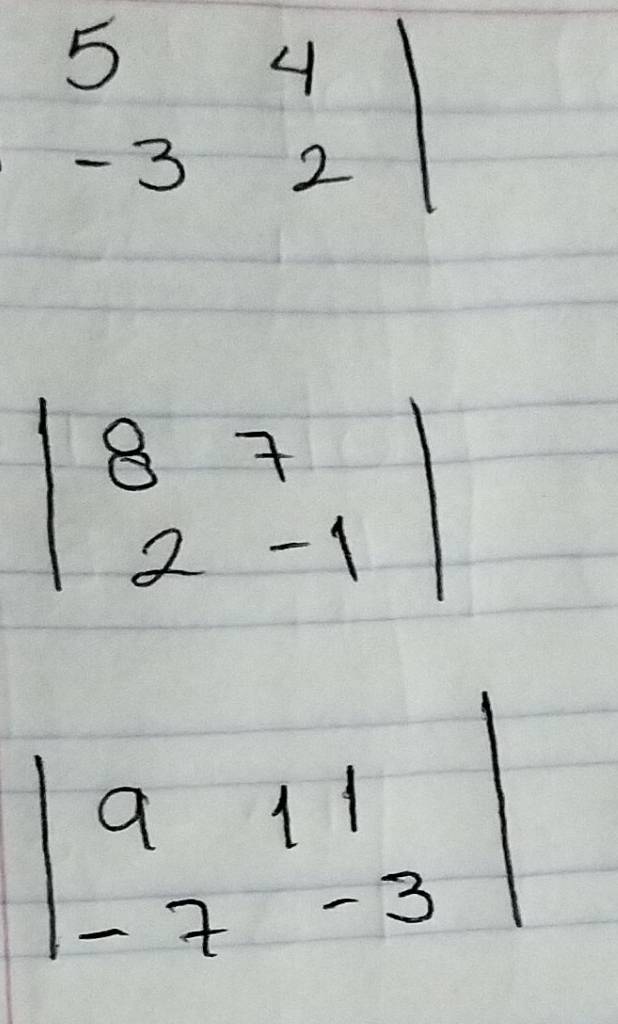 5 4 |
-3 2
| 8 7 |
2 -1
| 9 11 |
-7 -3